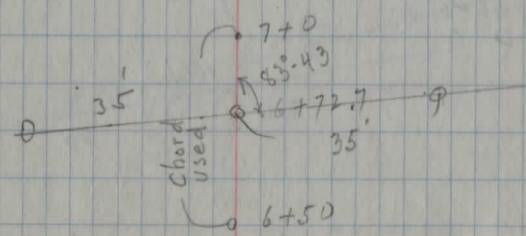 7+0
83°.43
35'
6+72.7
35'
Chord
used.
6+50